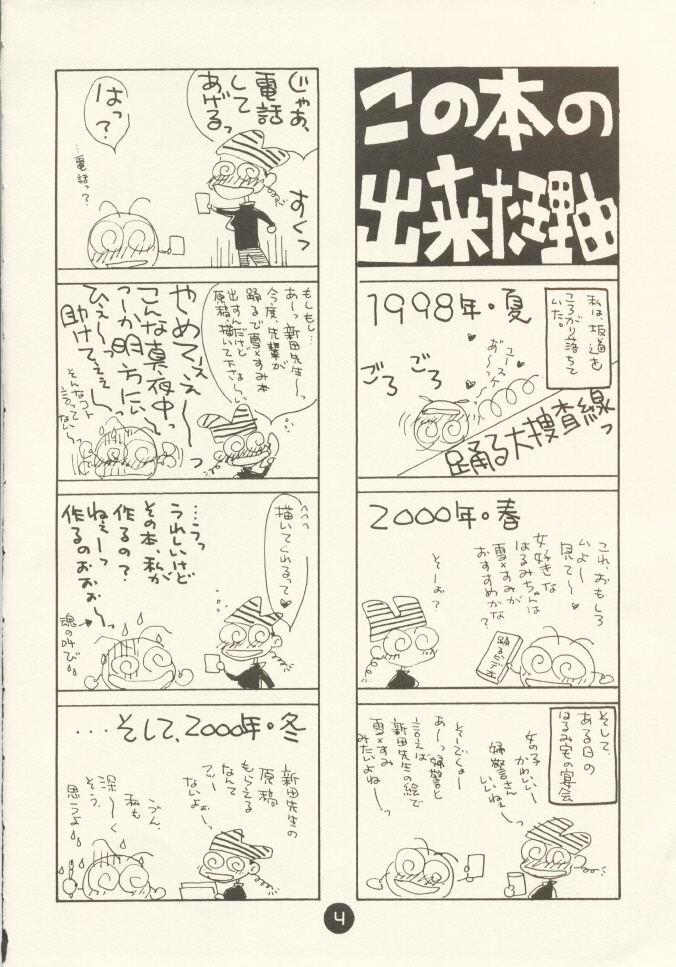 この本の
出来た理由
私は、坂道を
ころがり落ちて
いた。
1998年・夏
ユースケ
あ゛〜っ
ごろ
ごろ
踊る大捜査線っ
2000年・春
これ、おもしろ
いよ〜
見て〜
女好きな
はるみちゃんは
雪×すみが
おすすめかな?
踊るビデオ
そーお?
そして、
ある日の
はるみ宅の宴会
女の子
かわいいー
婦警さん
いいねぇ〜っ
そーでくぁー
あーっ婦警と
言えば
新田先生の絵で
雪×すみ
みたいよね〜っ
じゃあ、
電話
して
あげるっ
すくっ
はっ?
…電話っ?
もしもし…
あ〜っ新田先生〜っ
今度、先輩が
踊るで雪×すみ本
出すんだけど
原稿、描いて下さい〜
やめてぇぇ〜っ
こんな真夜中っ
つーか明方にぃ〜
ひぇぇ〜っ
助けてぇぇ〜
そんなコト
言ってない〜っ
へへっ
描いてくれるって
…うっ
うれしいけど
その本、私が
作るの?
ねぇーっ
作るのおぉお〜っ
魂の叫び
…そして、2000年・冬
新田先生の
原稿
もらえる
なんて
ナッツー
ないよぉ〜っ
うん、
私も
深〜く
そう、
思うよ
4